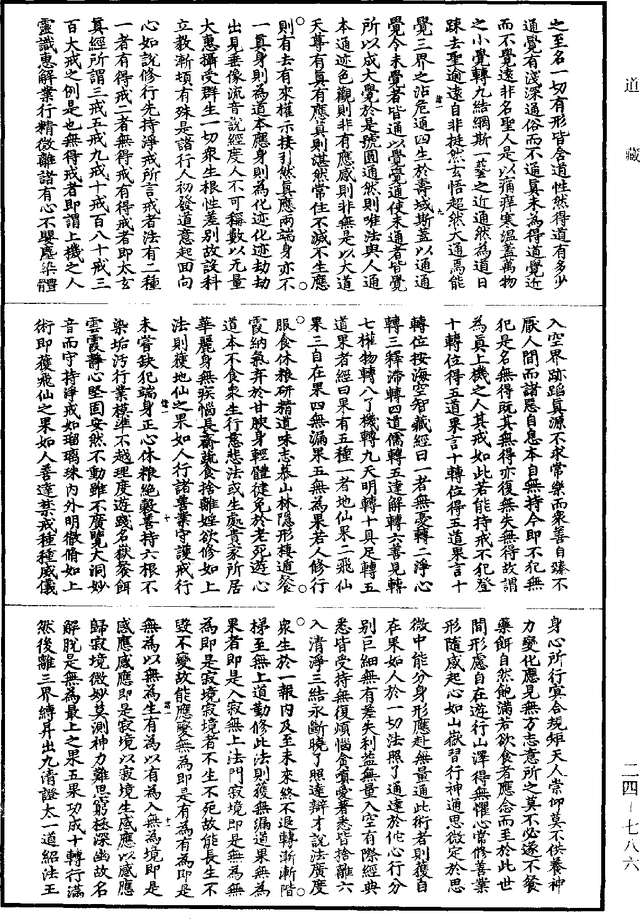 道藏
之至名一切有形皆含道性然得道有多少
通覺有淺深通俗而不通真未為得道覺近
而不覺遠非名聖人是以痛痒寒溫蓋萬物
之小覺轉九結網斯一藝之近通然為道日
踈去聖逾遠自非挺然玄悟超然大通焉能
覺三界之沾危通四生於壽域斯蓋以通通
覺今未覺者皆通以覺覺通使未通者皆覺
所以成大覺於是號圓通然則唯法與人通
本通迹色觀則非有應感則非無是以大道
天尊有真有應真則湛然常住不滅不生應
則有去有來權示接引然真應兩端身亦不
一真身則為道本應身則為化迹化迹劫劫
出見垂像流音說經度人不可稱數以无量
大惠攝受群生一切衆生根性差別故設科
立教漸頓有殊是諸行人初發道意起面向
心如說修行先持淨戒所言戒者法有二種
一者有得戒二者無得戒有得戒者即太玄
真經所謂三戒五戒九戒十戒百八十戒三
百大戒之例是也無得戒者即謂上機之人
靈識惠解業行精微離諸有心不嬰塵染體
入空界跡蹈真源不求常樂而衆善自臻不
厭人間而諸惡自息本自無持今即不犯無
犯是名無得既其無得亦復無失無得故謂
為真上機之人其戒如此若能持戒不犯登
十轉位得五道果言十轉位得五道果言十
轉位按海空智藏經曰一者無憂轉二淨心
轉三釋滯轉四道儒轉五達解轉六善見轉
七權物轉八了機轉九天明轉十具足轉五
道果者經曰果有五種一者地仙果二飛仙
果三自在果四無漏果五無為果若人修行
服食休粮研精道味志慕山林隱形棲遁飡
霞納氣弃於甘腴身輕體健免於老死遊心
道本不食衆生行慈悲法或生處貴家所居
華麗身無疾惱長齋蔬食捨離婬欲修如上
法則獲地仙之果如人行諸善業守護戒行
未嘗缺犯端身正心休粮絕穀善持六根不
染垢汚行業模準不越理度遊踐名嶽飡餌
雲霞靜心堅固安然不動雖不廣覽大洞妙
音而守持淨戒如瑠璃珠內外明徹脩如上
術即獲飛仙之果如人善達禁戒種種威儀
身心所行冥合規矩天人崇仰莫不供養神
力變化應見無方志意所之莫不必遂不飡
藥餌自然飽滿若欲食者應念而至於此世
間形應自在遊行山澤得無懼心常修善業
形隨感起心如山嶽習行神通思微定於思
微中能分身形應赴無量通此術者則獲自
在果如人於一切法照了通達於佗心行分
別巨細無有差失利益無量入空有際經典
悉皆受持無復煩惱貪嗔愛著悉皆捨離六
入清淨三結永斷曉了照達辯才說法廣度
衆生於一報內及至未來終不退轉漸漸階
梯至無上道勤修此法則獲無漏道果無為
果者即是入寂無上法門寂境即是無為無
為即是寂境寂境者不生不死故能長生不
毀不變故能應變無為即是有為有為即是
無為以無為生有為以有為入無為境即是
感應感應即是寂境以寂境生感應以感應
歸寂境微妙莫測神力難思窮極深幽故名
解脫是無為最上之果五果功成十轉行滿
然後離三界縛昇出九清證太一道紹法王
二四－七八六